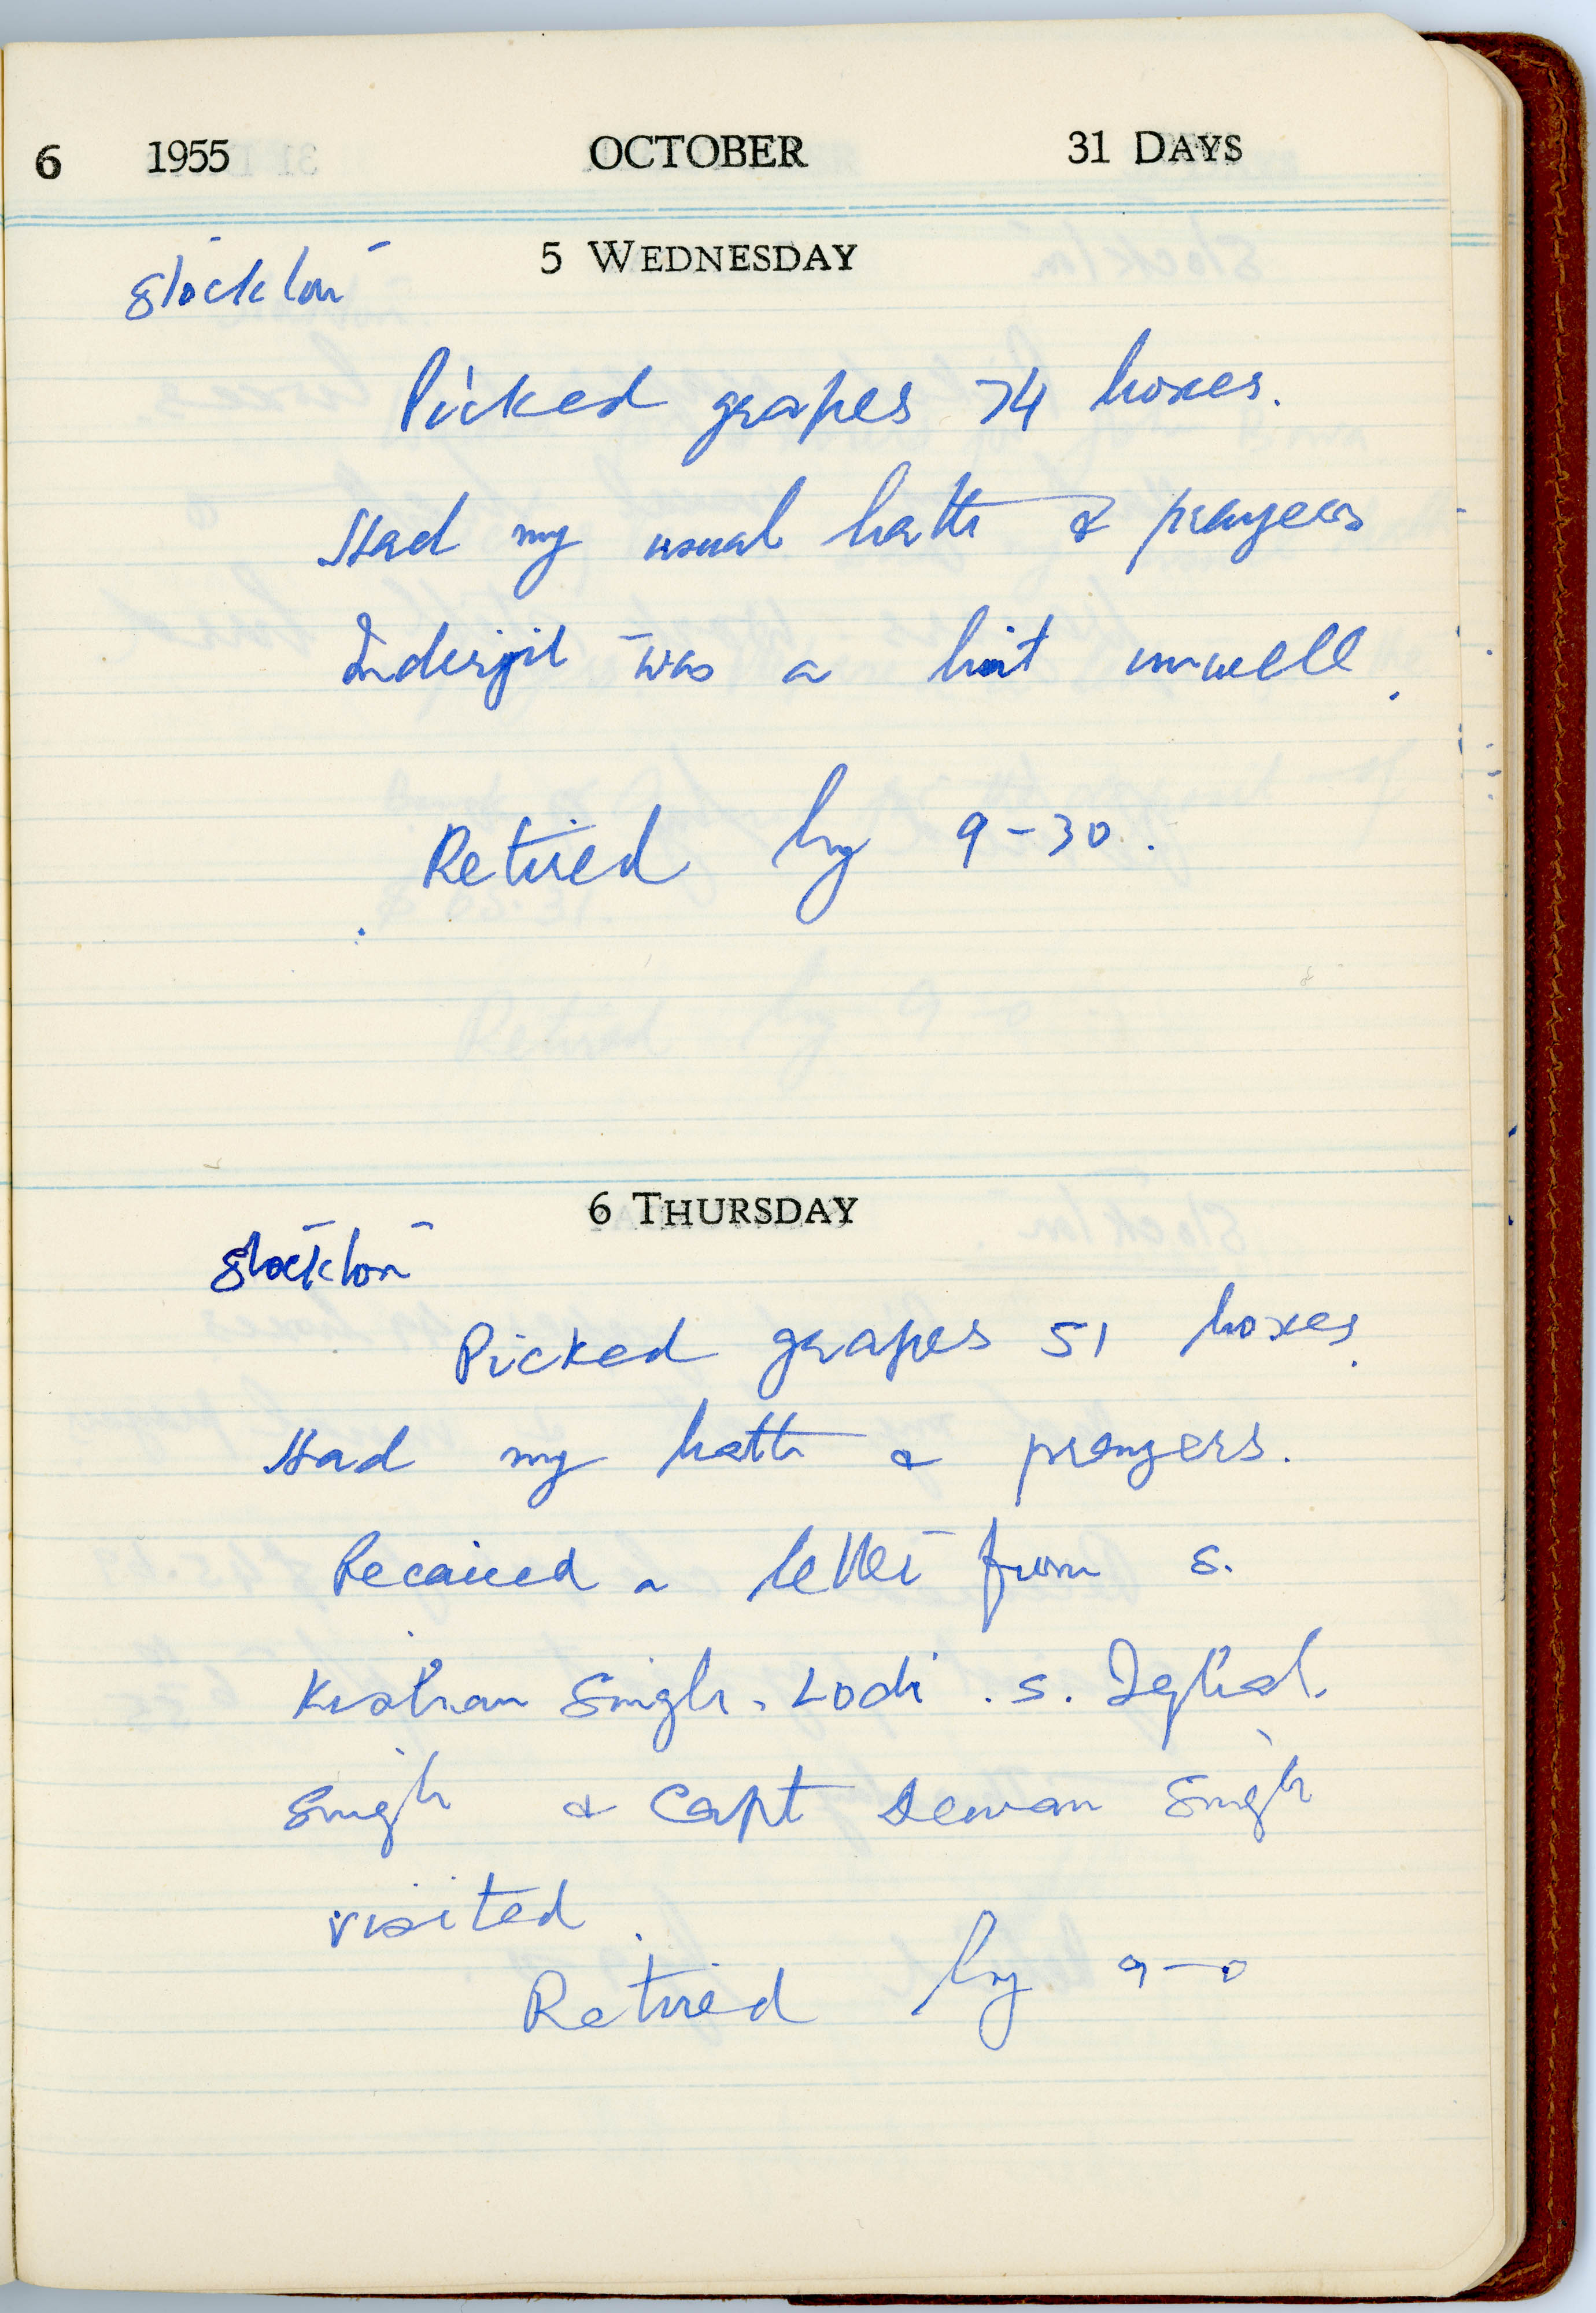 6 1955 OCTOBER 31 DAYS
5 WEDNESDAY
Stockton
Picked grapes 74 boxes.
Had my usual bath & prayers
Inderjit was a bit unwell.
Retired by 9-30.
6 THURSDAY
Stockton
Picked grapes 51 boxes.
Had my bath & prayers.
Recaived a letter from S.
Kishan Singh. Lodi. S. Iqbal.
Singh & Capt Dewan Singh
visited.
Retired by 9-0